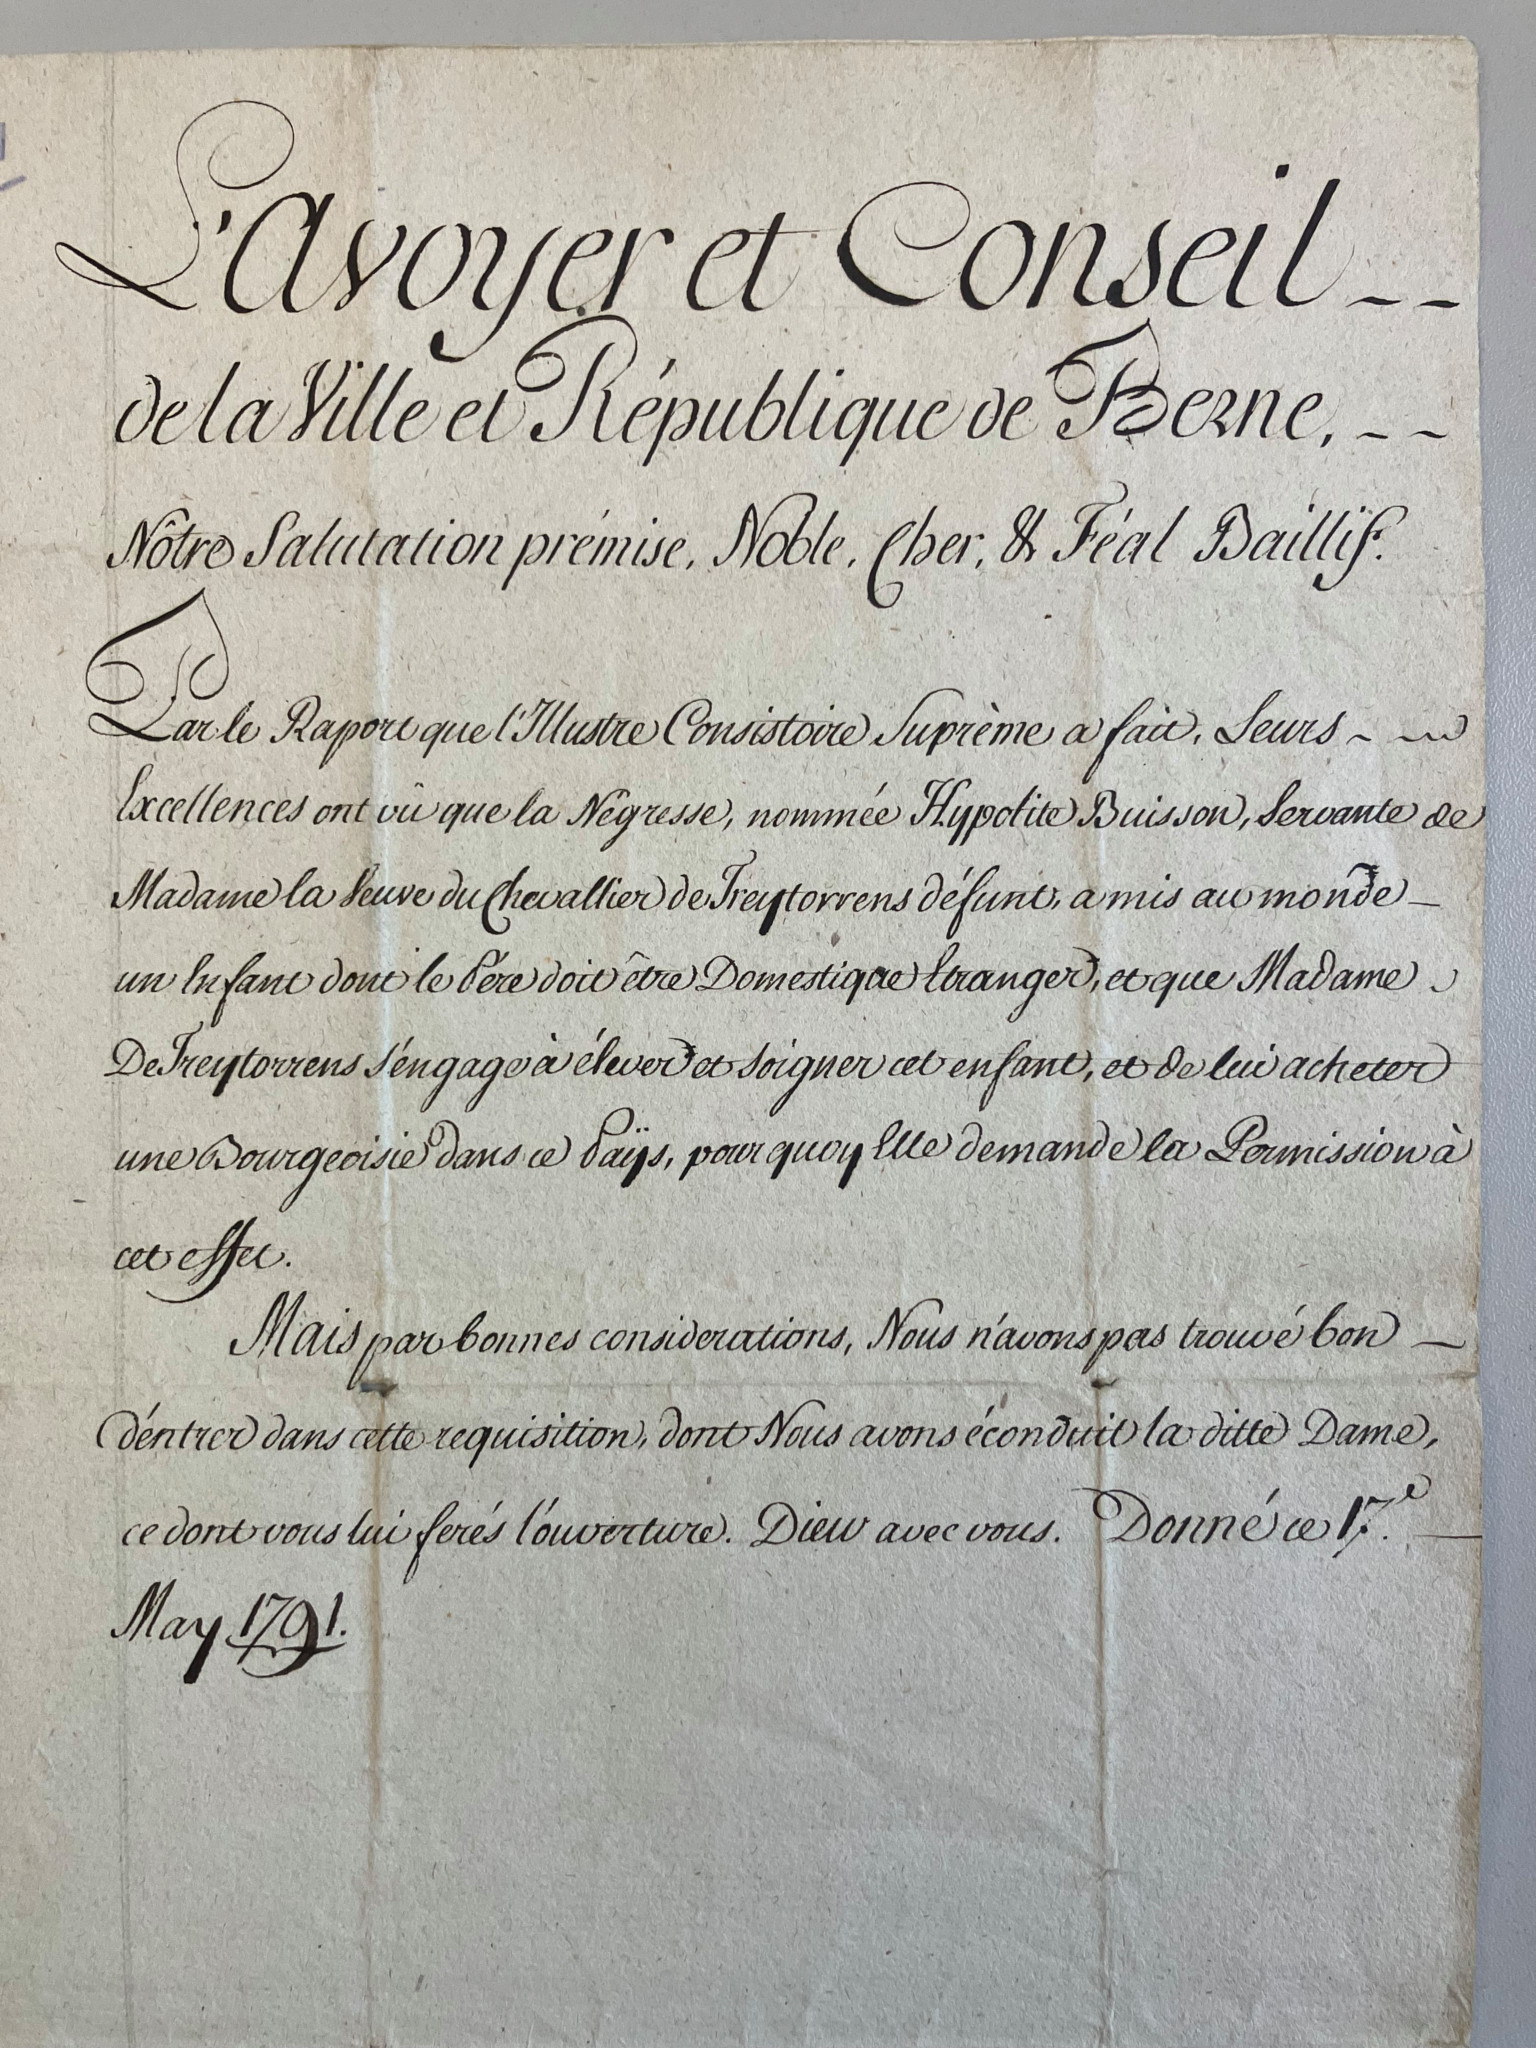 L'Avoyer et Conseil
de la Ville et République de Berne,
Nôtre Salutation prémise, Noble, Cher, & Féal Baillif.
Par le Raport que l'Illustre Consistoire Suprème a fait, Leurs
Excellences ont vû que la Négresse, nommée Hypolite Buisson, Servante de
Madame la Veuve du Chevallier de Treytorrens défunt, a mis au monde
un Enfant dont le Pére doit être Domestique Etranger, et que Madame
De Treytorrens s'éngage à élever et soigner cet enfant, et de lui acheter
une Bourgeoisie dans ce Païs, pour quoy Elle demande la Permission à
cet effet.
Mais par bonnes considerations, Nous n'avons pas trouvé bon
d'éntrer dans cette requisition, dont Nous avons éconduit la ditte Dame,
ce dont vous lui ferés l'ouverture. Dieu avec vous. Donné ce 17.e
May 1791.